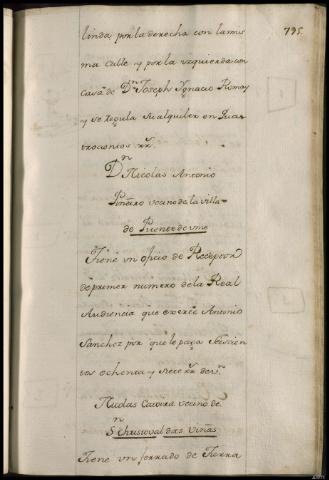 795
linda por la derecha con la mis
ma calle y por la izquierda con
casa de Dn Joseph Ygnacio Romay
y se regula su alquiler en Qua
trocientos rr.
Dn Nicolas Antonio
Piñeiro vecino de la villa
de Puente de ume
Tiene un oficio de Receptor
de primer numero de la Real
Audiencia que exerce Antonio
Sanchez por que le paga Seiscien
tos ochenta y siete rr. de vn
Nicolas vecino de
Sn Christoval das Viñas
Tiene un ferrado de tierra